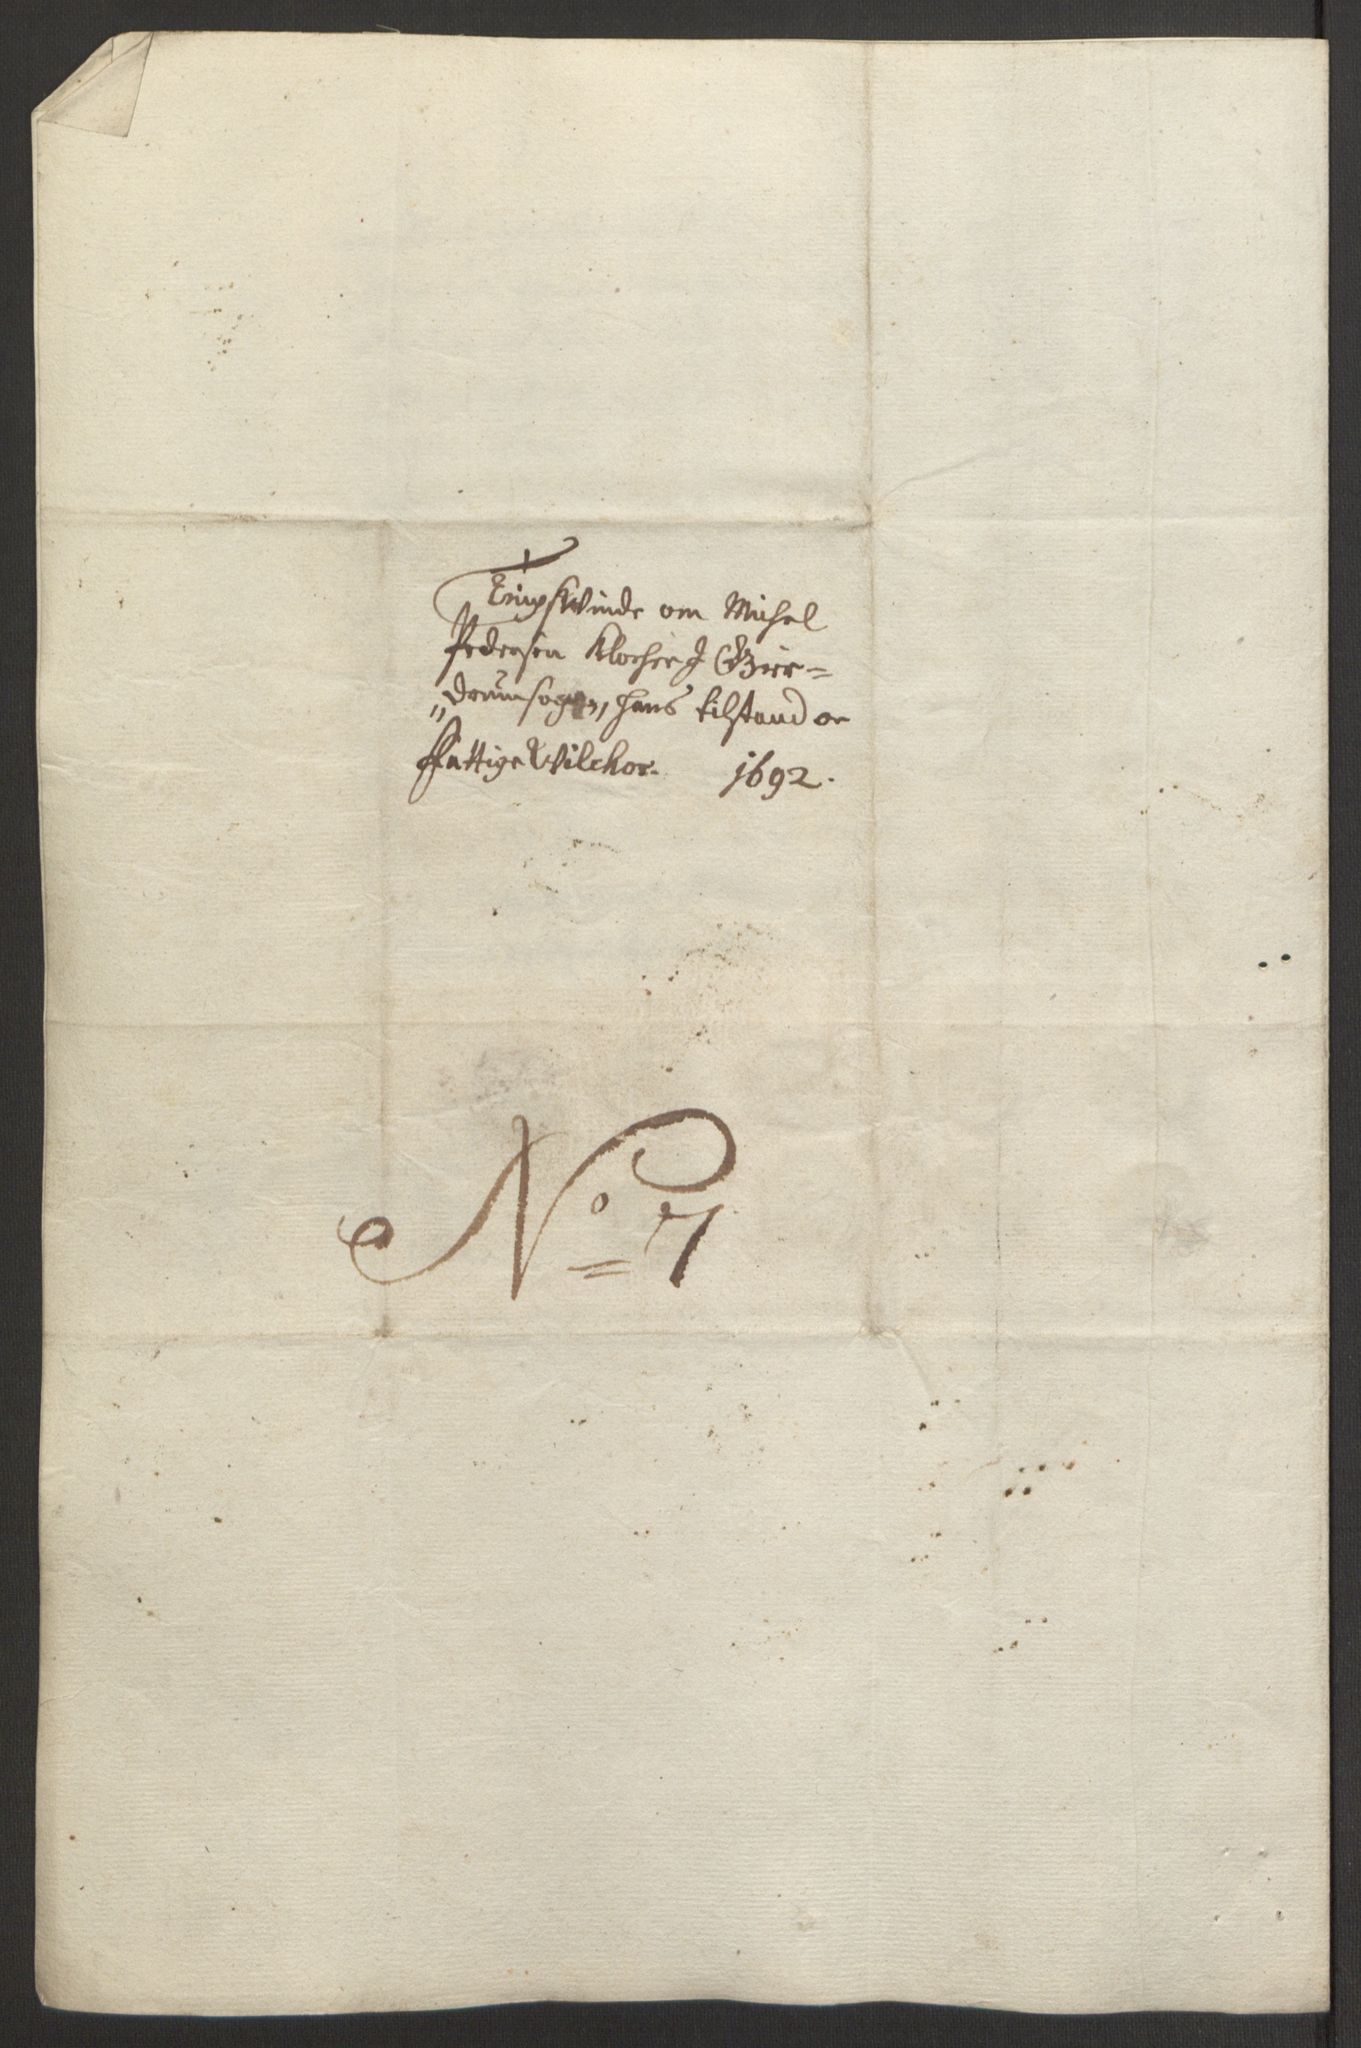 Tingswinde om Michel
Pedersen Klocher J Gier=
"drumsogen, hans tilstand oc
ffattige Wilckor. 1692.
No 7